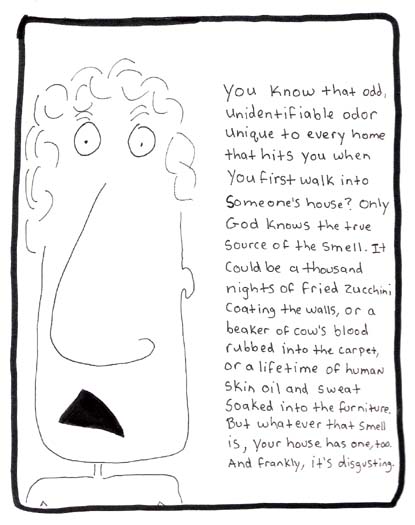 You know that odd,
unidentifiable odor
unique to every home
that hits you when
you first walk into
someone's house? Only
God knows the true
source of the smell. It
could be a thousand
nights of fried zucchini
coating the walls, or a
beaker of cow's blood
rubbed into the carpet,
or a lifetime of human
skin oil and sweat
soaked into the furniture.
But whatever that smell
is, your house has one, too.
And frankly, it's disgusting.